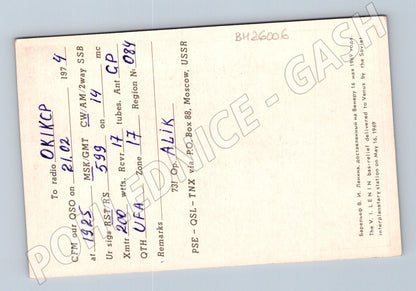 To radio OK1KCP
CFM our QSO on 21.02 1974
at 1925 MSK/GMT CW/AM/2way SSB
Ur sigs RST/RS 599 on 14 mc
Xmtr 200 wtts. Rcvr 17 tubes. Ant GP
QTH UFA Zone 17 Region № 084
Remarks
73! Op. ALIK
PSE - QSL - TNX via P.O. Box 88, Moscow, USSR
Барельеф В. И. Ленина, доставленный на Венеру 16 мая 1969 года
The V. I. LENIN bas-relief delivered to Venus by the Soviet
interplanetary station on May 16, 1969
BH26006
POHLEDNICE - GASH